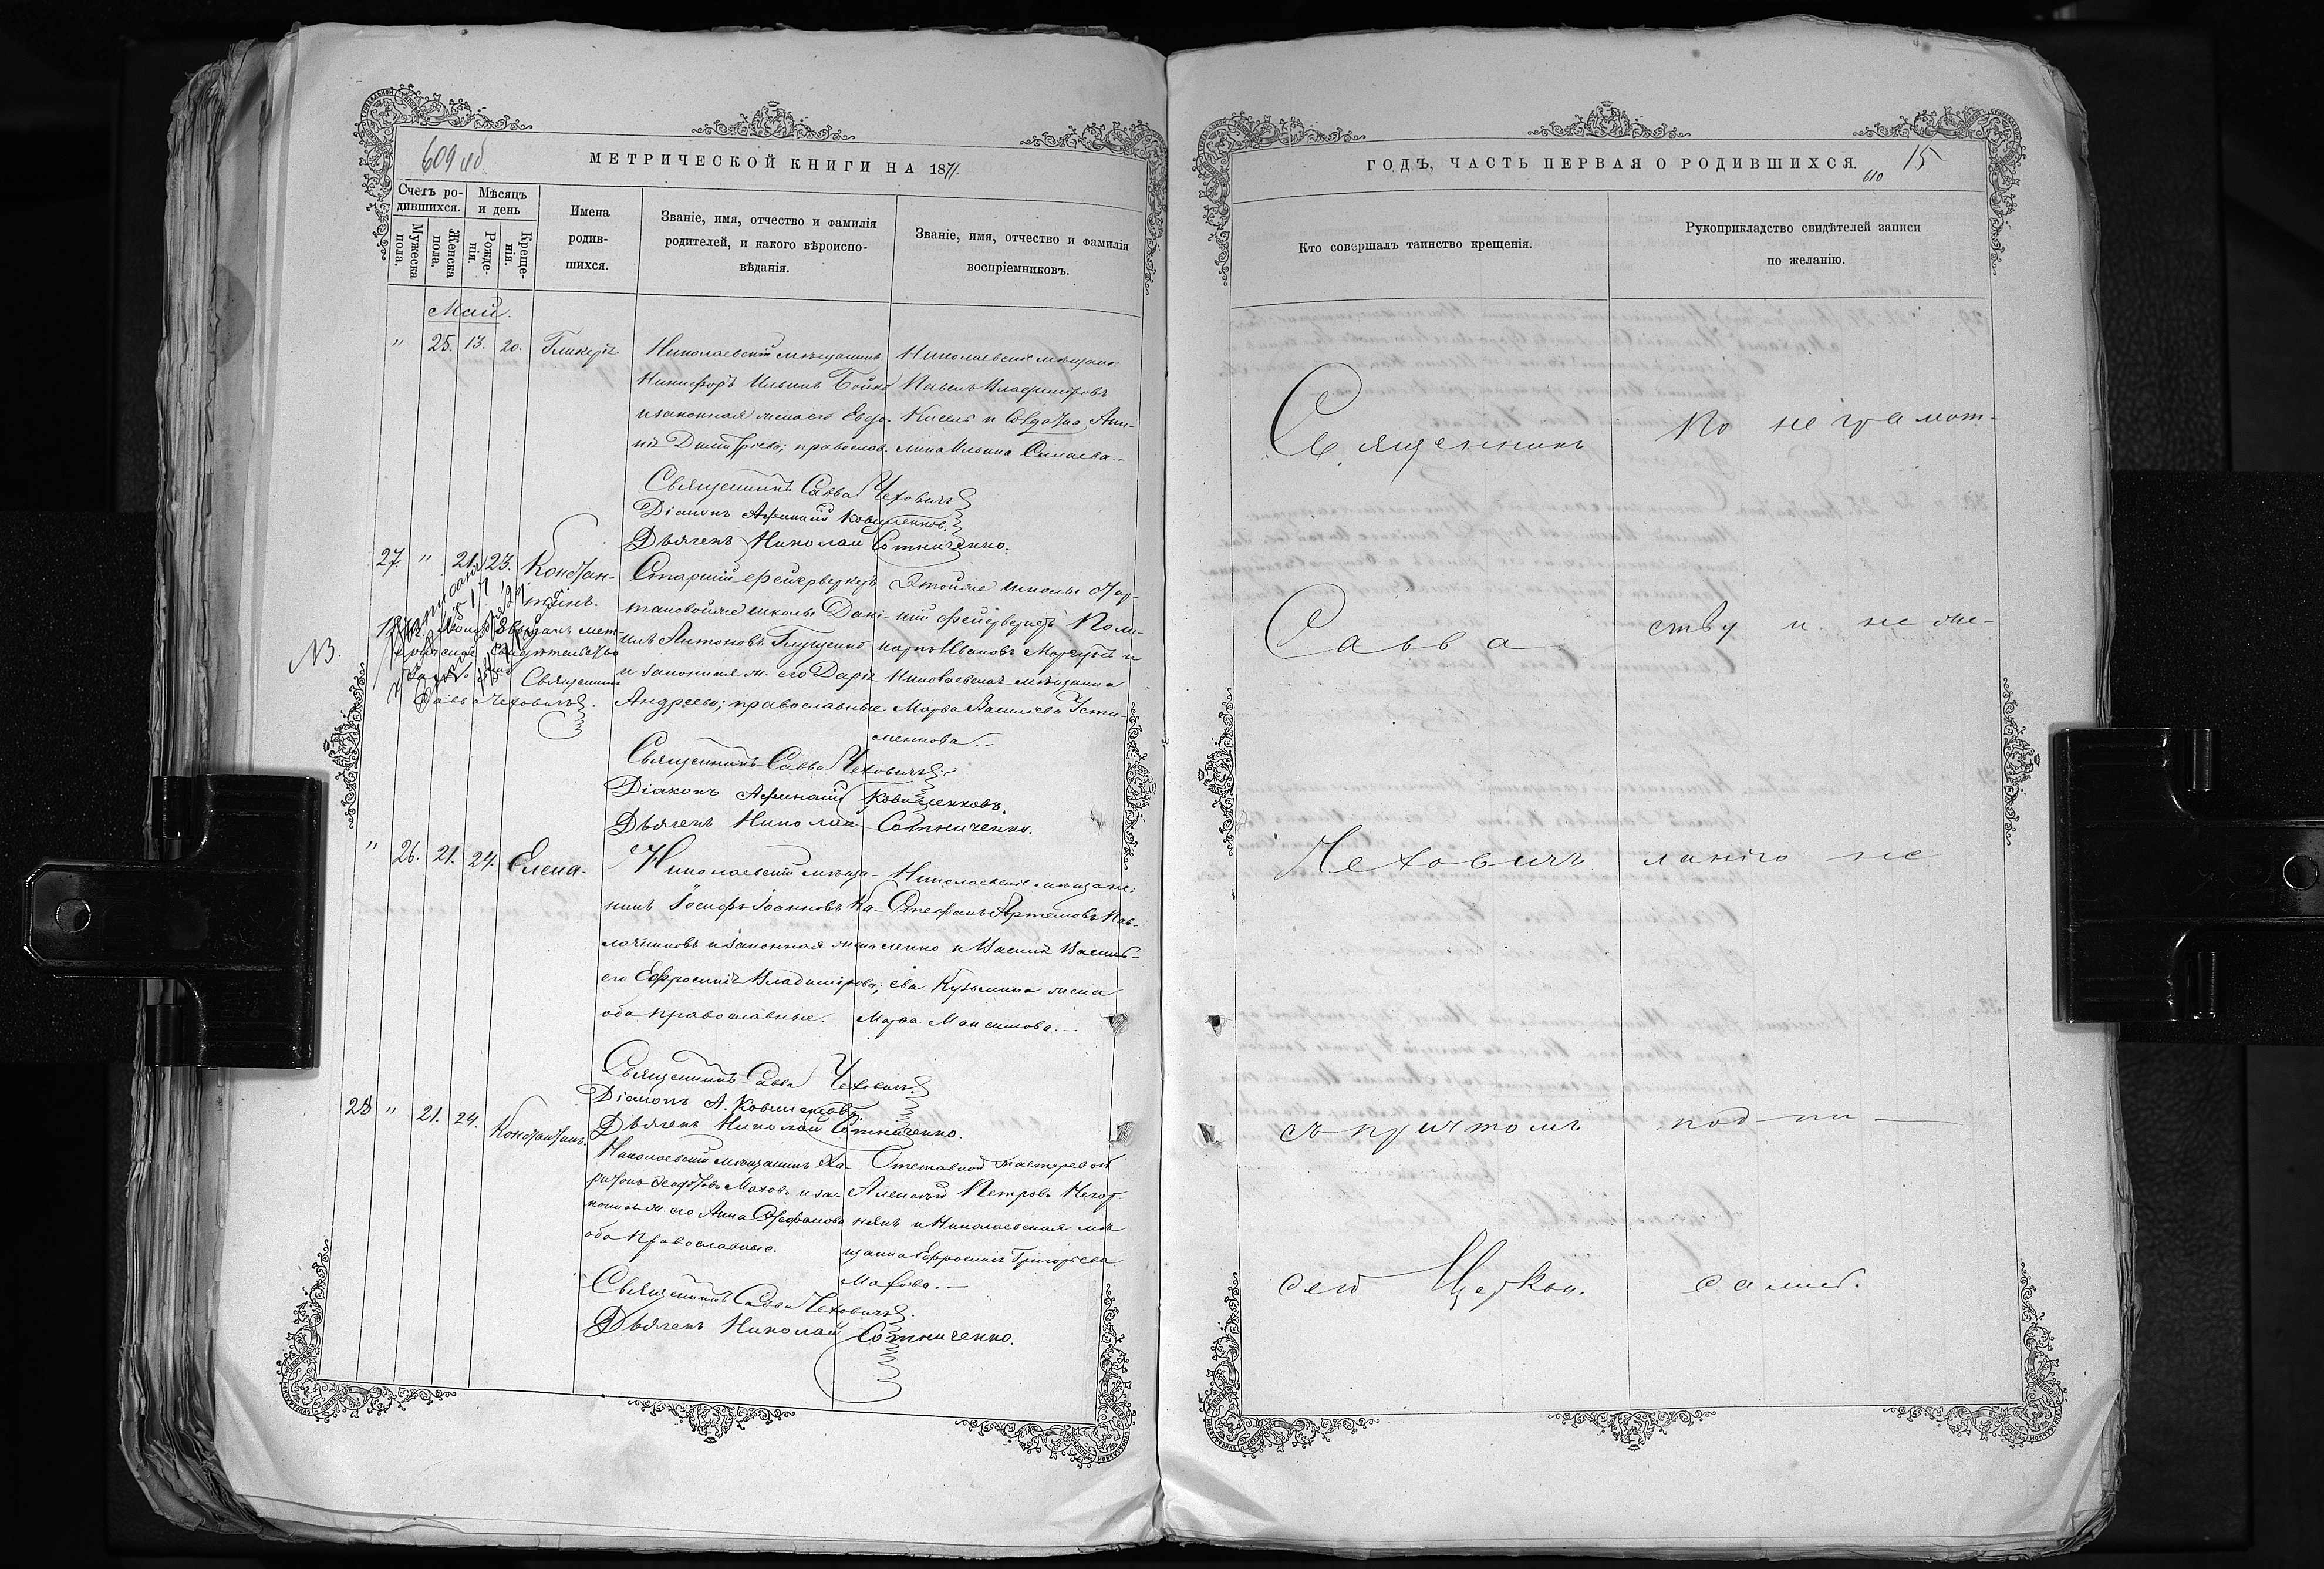 609 об
МЕТРИЧЕСКОЙ КНИГИ НА 1871.
Счетъ ро-
дившихся.
Мѣсяцъ
и день
Мужеска
пола.
Женска
пола.
Рожде-
нія.
Креще-
нія.
Имена
родив-
шихся.
Званіе, имя, отчество и фамилія
родителей, и какого вѣроиспо-
вѣданія.
Званіе, имя, отчество и фамилія
воспріемниковъ.
Май.
" 25. 13. 20. Гликерія
Николаевскій мѣщанинъ
Никифоръ Ильинъ Бойко
и законная жена его Евдо-
кія Димитріева; православ.
Николаевскіе мѣщане:
Павелъ Владиміровъ
Кисель и Солдатка Аки-
лина Ильина Силаева.-
Священникъ Савва Чеховичъ
Діаконъ Афанасій
Дьячекъ Николай Сотниченко.
27. " 21. 23. Констан-
тинъ.
Старшій фейерверкеръ
школы Дані-
илъ Антоновъ Глущенко
и законная ж. его Дарія
Андреева; православные.
Этойже школы Стар-
шій фейерверкеръ Поли-
карпъ Ивановъ Моргунъ и
Николаевская мѣщанка
Марѳа Василіева Усти-
менкова.-
NB.
свидѣтельство
Священникъ
Савва Чеховичъ.
Священникъ Савва Чеховичъ
Діаконъ Афанасій
Дьячекъ Николай Сотниченко.
" 26. 21. 24. Елена.
Николаевскій мѣща-
нинъ Іосифъ Іоанновъ Ка-
лачниковъ и законная жена
его Ефросинія Владимірова;
оба православные.
Николаевскіе мѣщане:
Стефанъ Артемовъ Пав-
ленко и Василія Василь-
ева Кузьмина жена
Марѳа Максимова.-
Священникъ Савва Чеховичъ
Діаконъ А.
Дьячекъ Николай Сотниченко.
28 " 21. 24. Константинъ.
Николаевскій мѣщанинъ Ха-
ритонъ Ѳедотовъ Маховъ и за-
конная ж. его Анна Стефанова
оба православные.
Отставной мастеровой
Алексѣй Петровъ
и Николаевская мѣ-
щанка Ефросинія Григорьева
Махова.-
Священникъ Савва Чеховичъ.
Дьячекъ Николай Сотниченко.
ГОДЪ, ЧАСТЬ ПЕРВАЯ О РОДИВШИХСЯ.
610
15
Кто совершалъ таинство крещенія.
Рукоприкладство свидѣтелей записи
по желанію.
Священникъ
Савва
Чеховичъ
съ причтомъ
сей Церкви.
По неграмот-
ству и не же-
ланію не
под-пи-
сались.